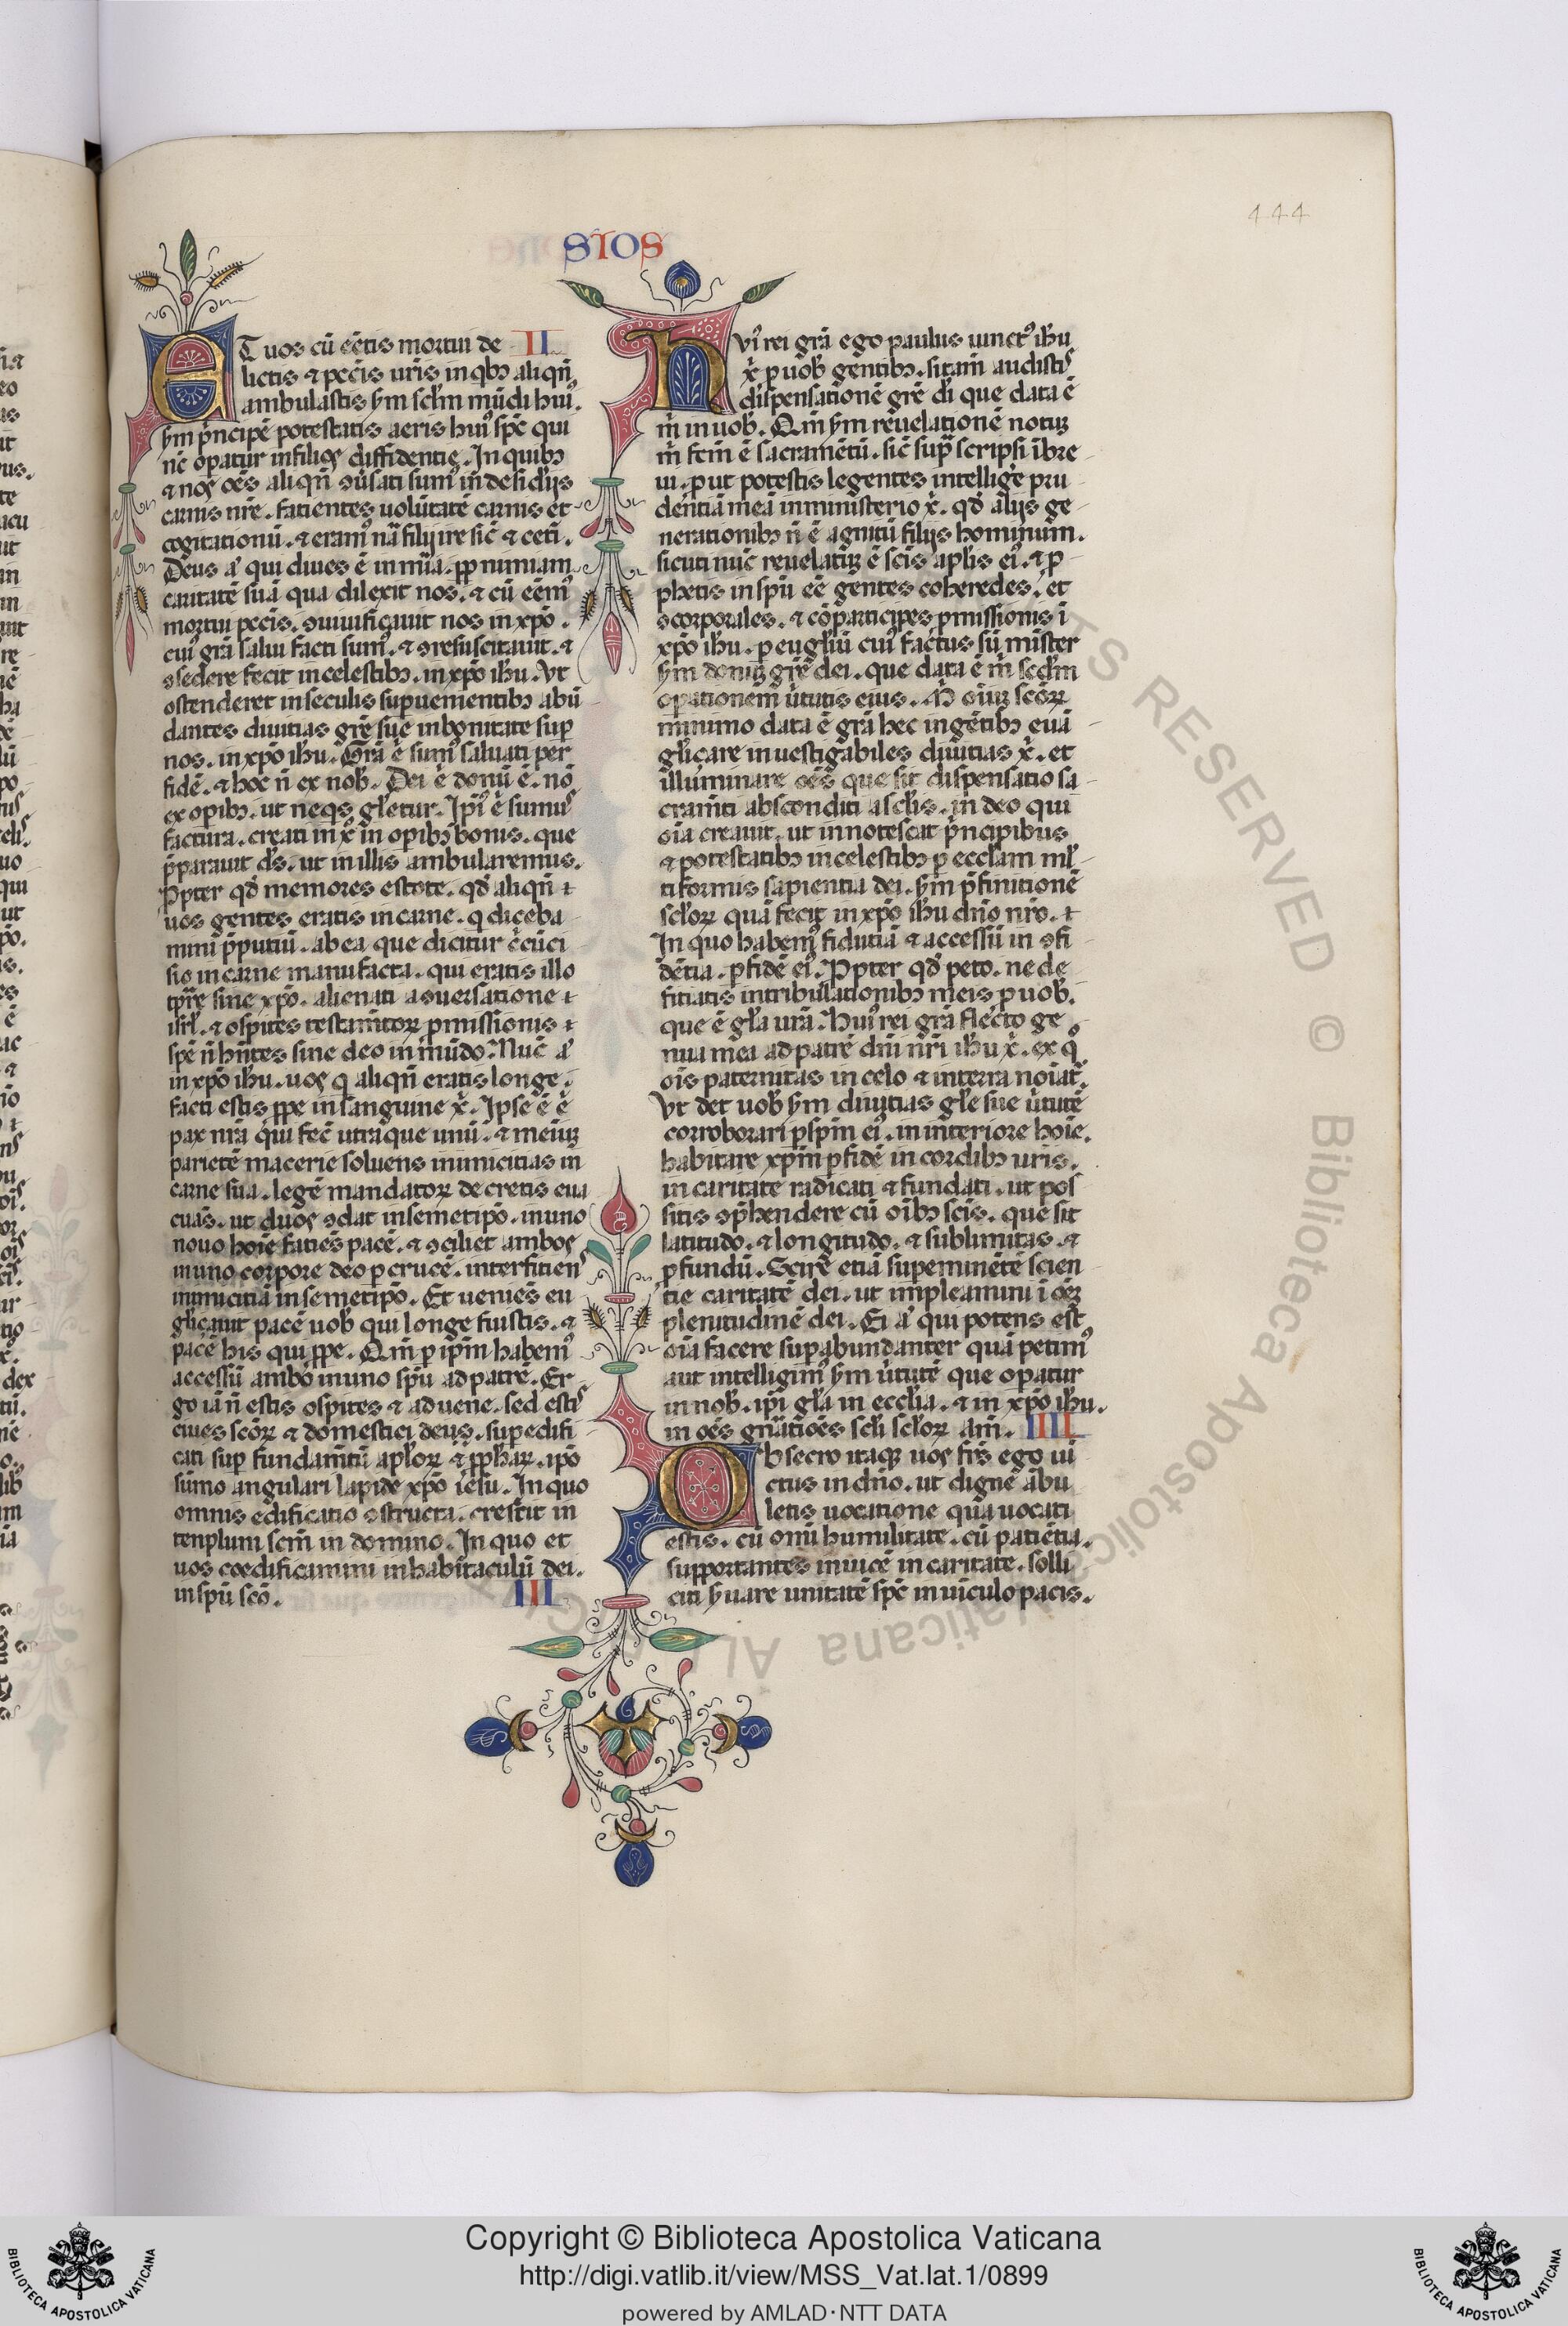 444
SIOS
ET uos cũ eẽtis mortui de II
lictis ⁊ pcc̃is ur̃is in qbꝫ aliqñ
ambulastis ẜm sclm mũdi huiꝰ.
ẜm p̃ncipẽ potestatis aeris huiꝰ sp̃c qui
nc̃ oꝑatur in filios diffidentie. In quibꝫ
⁊ nos oẽs aliqñ ꝯũsati sumꝰ in desideriis
carnis nr̃e. facientes uolũtatẽ carnis et
cogitationũ. ⁊ eramꝰ nã filij ire sic̃ ⁊ cetĩ.
Deus aͥ qui diues ẽ in mĩa. ꝓp nimiam
caritatẽ suã qua dilexit nos. ⁊ cũ eẽmꝰ
mortui pcc̃is. ꝯuiuificauit nos in xp̃o.
cuiꝰ grã salui facti sumꝰ. ⁊ ꝯresuscitauit. ⁊
ꝯsedere fecit in celestibꝫ. in xp̃o ihũ. Vt
ostenderet in seculis suꝑuenientibꝫ abũ
dantes diuitias grẽ sue in bonitate suꝑ
nos. in xp̃o ihũ. Grã ẽ sumꝰ saluati per
fidẽ. ⁊ hoc ñ ex nob̃. Dei ẽ donũ ẽ. nõ
ex oꝑibꝫ. ut neqs gl̃etur. Ipĩꝰ ẽ sumus
factura. creati in xͦ in oꝑibꝫ bonis. que
p̃parauit ds̃. ut in illis ambularemus.
Ppter qđ memores estote. qđ aliqñ ⁊
uos gentes eratis in carne. q diceba
mini p̃putiũ. ab ea que dicitur c̃cũci
sio in carne manu facta. qui eratis illo
tꝑr̃e sine xp̃o. alienati a ꝯuersatione ⁊
isrl̃. ⁊ ospites testam̃torꝝ ꝓmissionis ⁊
spẽ ñ hñtes sine deo in mũdo. Nuc̃ aͥ
in xp̃o ihũ. uos q aliqñ eratis longe.
facti estis ꝓpe in sanguine xͥ. Ipse ẽ ẽ
pax nrã qui fec̃ utraque unũ. ⁊ mediũ
parietẽ macerie soluens inimicitias in
carne sua. legẽ mandatorꝝ decretis eua
cuãs. ut duos ꝯdat in semetip̃o. in uno
nouo hoĩe faciẽs pacẽ. ⁊ ꝯciliet ambos
in uno corpore deo ꝑ crucẽ. interficiens
inimicitiã in semetip̃o. Et ueniẽs eu
gl̃icauit pacẽ uob̃ qui longe fuistis. ⁊
pacẽ his qui ꝓpe. Qm̃ ꝑ ip̃m habemꝰ
accessũ ambo in uno spũ ad patrẽ. Er
go iã ñ estis ospites ⁊ aduene. sed estis
ciues scõrꝝ ⁊ domestici deus. suꝑedifi
cati suꝑ fundam̃tũ apl̃orꝝ ⁊ ꝓpharꝝ. ip̃o
sũmo angulari lapide xp̃o iesu. In quo
omnis edificatio ꝯstructa. crescit in
templum scm̃ in domino. In quo et
uos coedificamini in habitaculũ dei.
in spũ scõ. III
HVĩ rei grã ego paulus uinctꝰ ihũ
xͥ ꝓ uob̃ gentibꝫ. si tam̃ audistis
dispensationẽ grẽ dĩ que data ẽ
m̃ in uob̃. Qm̃ ẜm reuelationẽ notũ
m̃ fcm̃ ẽ sacramẽtũ. sic̃ sup̃ scripsi ĩ bre
ui. ꝓut potestis legentes intelligẽ pru
dẽntiã meã in ministerio xͥ. qđ alijs ge
nerationibꝫ ñ ẽ agnitũ filijs hominum.
sicuti nũc reuelatũ ẽ scĩs apl̃is eiꝰ. ⁊ ꝓ
phetis in spũ eẽ gentes coheredes. et
ꝯcorporales. ⁊ cõparticipes ꝓmissionis ĩ
xp̃o ihũ. ꝑ eugl̃iũ cuiꝰ factus sũ mister
ẜm donũ grẽ dei. que data ẽ m̃ scdm
oꝑationem ũtutis eius. M̃ oĩũ scõrꝝ
minimo data ẽ grã hec in gẽtibꝫ euã
gl̃icare inuestigabiles diuitias xͥ. et
illuminare oẽs que sit dispensatio sa
cram̃ti absconditi a scl̃is. in deo qui
oĩa creauit. ut innotescat p̃ncipibus
⁊ potestatibꝫ in celestibꝫ ꝑ eccl̃am ml̃
tiformis sapientia dei. ẜm p̃finitionẽ
scl̃orꝝ quã fecit in xp̃o ihũ dño nr̃o. ⁊
In quo habemꝰ fidutiã ⁊ accessũ in ꝯfi
dẽtia. ꝑ fidẽ eiꝰ. Ppter qđ peto. ne de
fitiatis in tribulationibꝫ meis ꝓ uob̃.
que ẽ gl̃a urã. Huiꝰ rei grã flecto ge
nua mea ad patrẽ dñi nr̃i ihũ xͥ. ex qͦ
oĩs paternitas in celo ⁊ in terra noĩat̃.
Vt det uob̃ ẜm diuitias gl̃e sue ũtutẽ
corroborari ꝑ spm̃ eiꝰ. in interiore hoĩe.
habitare xp̃m ꝑ fidẽ in cordibꝫ uris.
in caritate radicati ⁊ fundati. ut pos
sitis ꝯp̃hendere cũ oĩbꝫ scĩs. que sit
latitudo. ⁊ longitudo. ⁊ sublimitas. ⁊
ꝓfundũ. Scire etiã suꝑeminẽtẽ scien
tie caritatẽ dei. ut impleamini ĩ oẽꝫ
plenitudinẽ dei. Ei aͥ qui potens est
oĩa facere suꝑabundanter quã petimꝰ
aut intelligimꝰ ẜm ũtutẽ que oꝑatur
in nob̃. ip̃i gl̃a in eccl̃ia. ⁊ in xp̃o ihũ.
in oẽs gñatiões scl̃i scl̃orꝝ am̃. IIII
OBsecro itaqꝫ uos fr̃s ego ui
ctus in dño. ut digne ãbu
letis uocatione qua uocati
estis. cũ omi humilitate. cũ patiẽtia.
supportantes inuicẽ in caritate. solli
citi ẜuare unitatẽ sp̃c in uĩculo pacis.
Copyright © Biblioteca Apostolica Vaticana
http://digi.vatlib.it/view/MSS_Vat.lat.1/0899
powered by AMLAD·NTT DATA
BIBLIOTECA APOSTOLICA VATICANA
BIBLIOTECA APOSTOLICA VATICANA